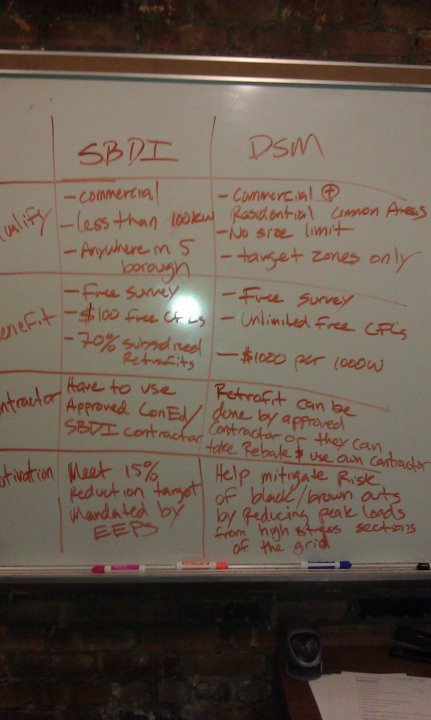 SBDI
DSM
ualify
- commercial
- Less than 100kW
- Anywhere in 5
borough
- Commercial +
Residential Common Areas
- No size limit
- target zones only
enefit
- Free survey
- $100 free CFLs
- 70% subsidized
Retrofits
- Free survey
- Unlimited Free CFL's
- $1000 per 1000W
ntractor
Have to use
Approved ConEd/
SBDI contractor
Retrofit can be
done by approved
Contractor or they can
take Rebate & use own contractor
otivation
Meet 15%
Reduction target
Mandated by
EEPS
Help mitigate Risk
of black/brown outs
by Reducing peak loads
from high stress sections
of the grid